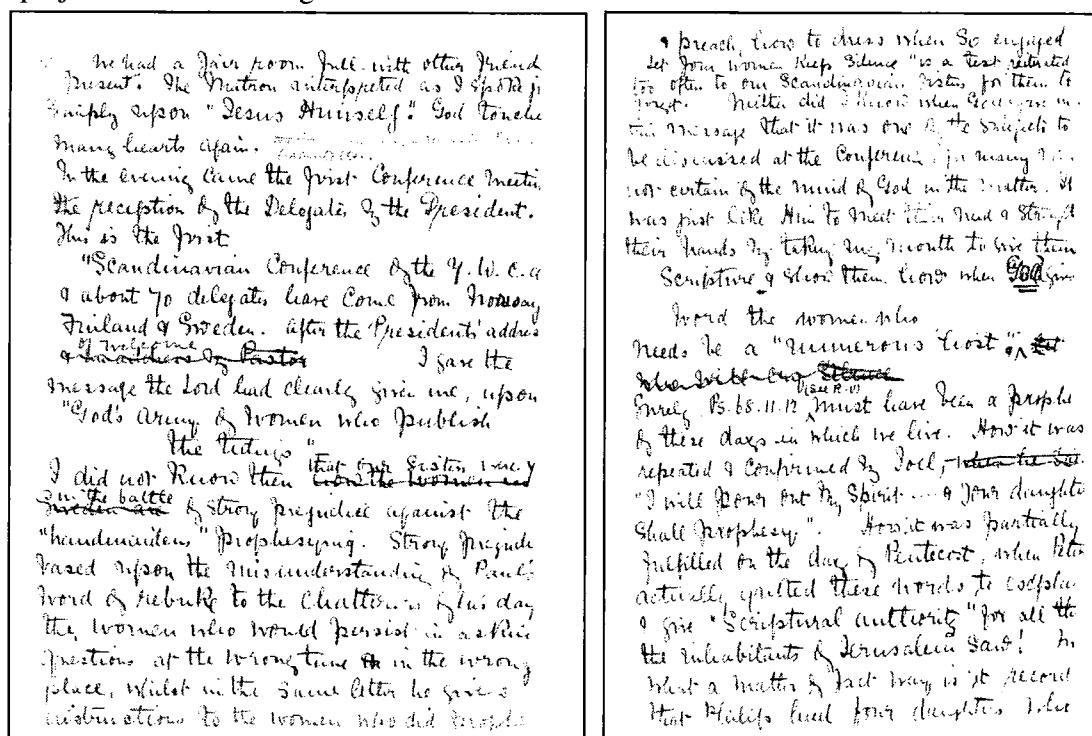 We had a fair room full with other friend
present. The Matron interpreted as I spoke
simply upon "Jesus Himself." God touche
many hearts again.
In the evening came the first Conference Meetin
the reception of the Delegates by the President.
This is the first
"Scandinavian Conference of the Y.W.C.A
& about 70 delegates have come from Norway
Finland & Sweden. After the Presidents' addres
of welcome
I gave the
message the Lord had clearly given me, upon
"God's Army of Women who publish
the tidings"
that our sisters were
I did not know then
in the battle
of strong prejudice against the
"handmaidens" prophesying. Strong prejudi
based upon the misunderstanding of Paul's
word of rebuke to the chatterers of his day
the women who would persist in askin
questions at the wrong time in the wrong
place, whilst in the same letter he gives
instructions to the women who did prophe
preach, how to dress when so engaged
Let your women keep silence" is a text reiterated
too often to our Scandinavian sisters for them to
forget. Neither did I know when God gave
this message that it was one of the subjects to
be discussed at the Conference, for many
not certain of the mind of God in the matter. It
was just like Him to meet their need & strength
their hands by taking my mouth to give them
Scripture & show them how when God give
word the women who
needs be a "numerous host".
(see R.V)
Surely Ps. 68. 11. 12 must have been a prophe
of these days in which we live. How it was
repeated & confirmed by Joel,
"I will pour out My Spirit .... & your daughte
shall prophesy". How it was partially
fulfilled on the day of Pentecost, when Peter
actually quoted these words to explai
& give "Scriptural authority" for all the
the inhabitants of Jerusalem saw! In
what a matter of fact way is it record
that Philip had four daughters who